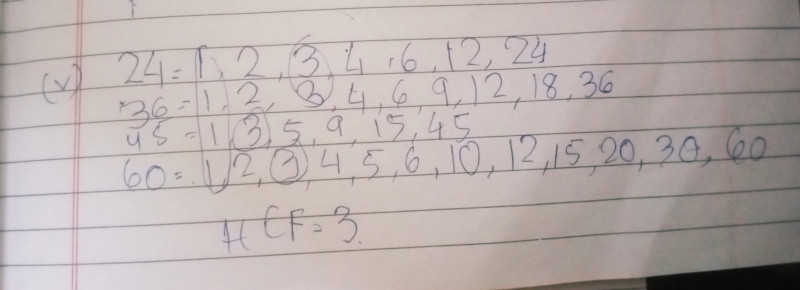 (v) 24 = 1, 2, 3, 4, 6, 12, 24
36 = 1, 2, 3, 4, 6, 9, 12, 18, 36
45 = 1, 3, 5, 9, 15, 45
60 = 1, 2, 3, 4, 5, 6, 10, 12, 15, 20, 30, 60
HCF = 3.